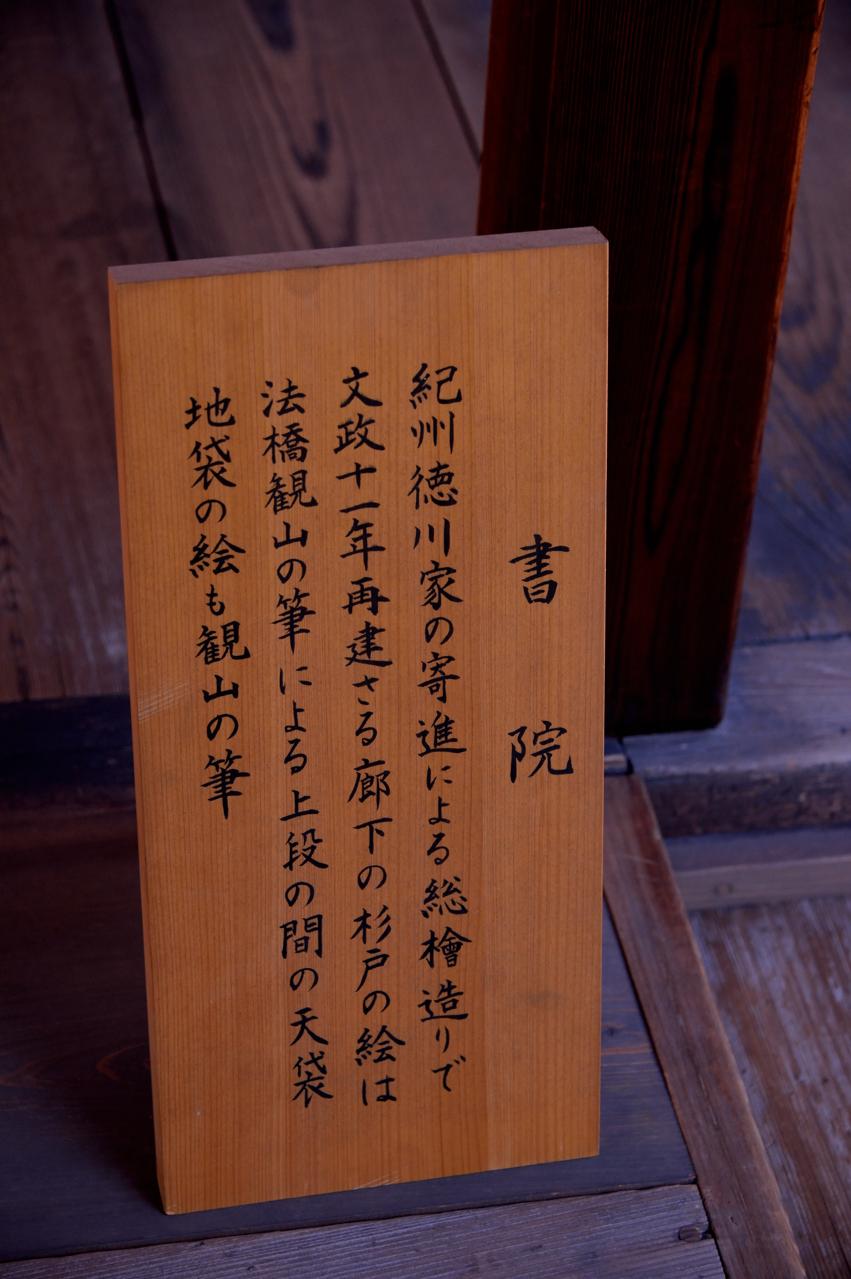 書院
紀州徳川家の寄進による総檜造りで
文政十一年再建さる廊下の杉戸の絵は
法橋観山の筆による上段の間の天袋
地袋の絵も観山の筆